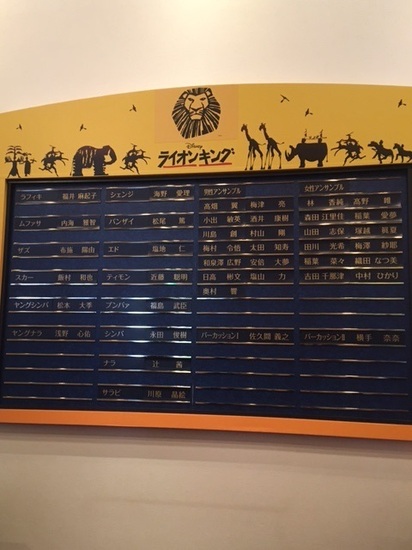 Disney
ライオンキング
ラフィキ 福井 麻起子
ムファサ 内海 雅智
ザズ 布施 陽由
スカー 飯村 和也
ヤングシンバ 松本 大季
ヤングナラ 浅野 心佑
シェンジ 海野 愛理
バンザイ 松尾 篤
エド 塩地 仁
ティモン 近藤 聡明
プンバァ 福島 武臣
シンバ 永田 俊樹
ナラ 辻 茜
サラビ 川原 晶絵
男性アンサンブル
高畑 翼 梅津 亮
小出 敏英 酒井 康樹
川島 創 村山 剛
梅村 令悟 太田 知寿
和泉澤 広野 安倍 大夢
日高 彬文 塩山 力
奥村 響
パーカッションⅠ 佐久間 義之
女性アンサンブル
林 香純 高野 唯
森田 江里佳 稲葉 美憂
山田 志保 塚越 眞夏
田川 光希 梅澤 紗耶
稲葉 菜々 織田 なつ美
古田 千那津 中村 ひかり
パーカッションⅡ 横手 奈奈